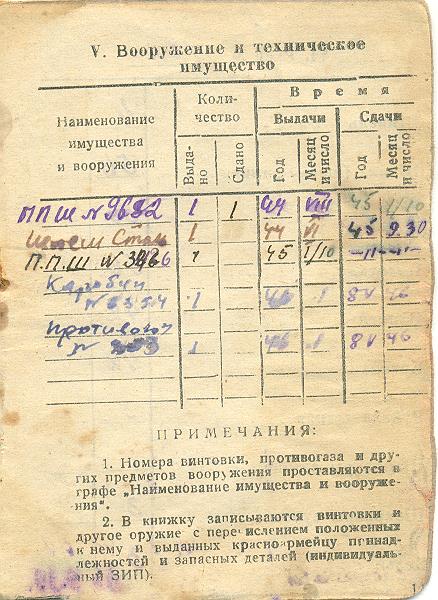 V. Вооружение и техническое
имущество
Наименование
имущества
и вооружения
Коли-
чество
Выда-
но
Сдано
Время
Выдачи
Сдачи
Год
Месяц
и число
Год
Месяц
и число
ППШ №9682 1 1 44 VIII 45 1/10
1 44 VI 45 9.30
П.П.Ш № 1 45 1/10 -"-"-
Карабин
№ 1 46 1
Противогаз
№ 1 46 1
ПРИМЕЧАНИЯ:
1. Номера винтовки, противогаза и дру-
гих предметов вооружения проставляются в
графе „Наименование имущества и вооруже-
ния".
2. В книжку записываются винтовки и
другое оружие с перечислением положенных
к нему и выданных красноармейцу принад-
лежностей и запасных деталей (индивидуаль-
ный ЗИП).